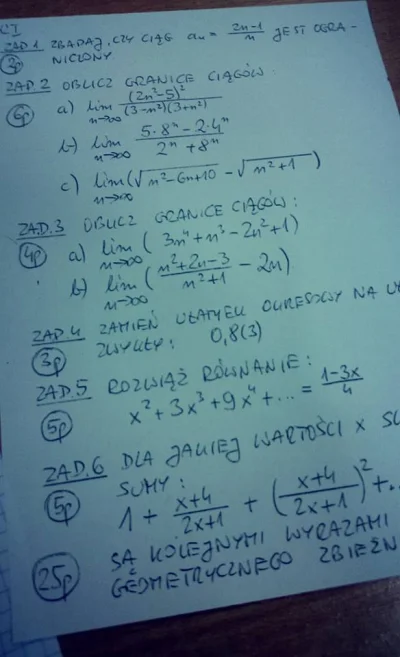 ZAD.1 ZBADAJ, CZY CIĄG aₙ = (2n-1)/n JEST OGRA-
3p NICZONY
ZAD 2 OBLICZ GRANICE CIĄGÓW
6p a) lim n→∞ (2n²-5)²/((3-n²)(3+n²))
b) lim n→∞ (5·8ⁿ-2·4ⁿ)/(2ⁿ+8ⁿ)
c) lim n→∞ (√(n²-6n+10) - √(n²+1))
ZAD.3 OBLICZ GRANICE CIĄGÓW:
4p a) lim n→∞ (3n⁴+n³-2n²+1)
b) lim n→∞ ((n²+2n-3)/(n²+1) - 2n)
ZAD.4 ZAMIEŃ UŁAMEK OKRESOWY NA
3p ZWYKŁY: 0,8(3)
ZAD.5 ROZWIĄŻ RÓWNANIE:
5p x²+3x³+9x⁴+... = (1-3x)/4
ZAD.6 DLA JAKIEJ WARTOŚCI X
5p SUMY:
1 + (x+4)/(2x+1) + ((x+4)/(2x+1))² + ...
25p SĄ KOLEJNYMI WYRAZAMI
GEOMETRYCZNEGO